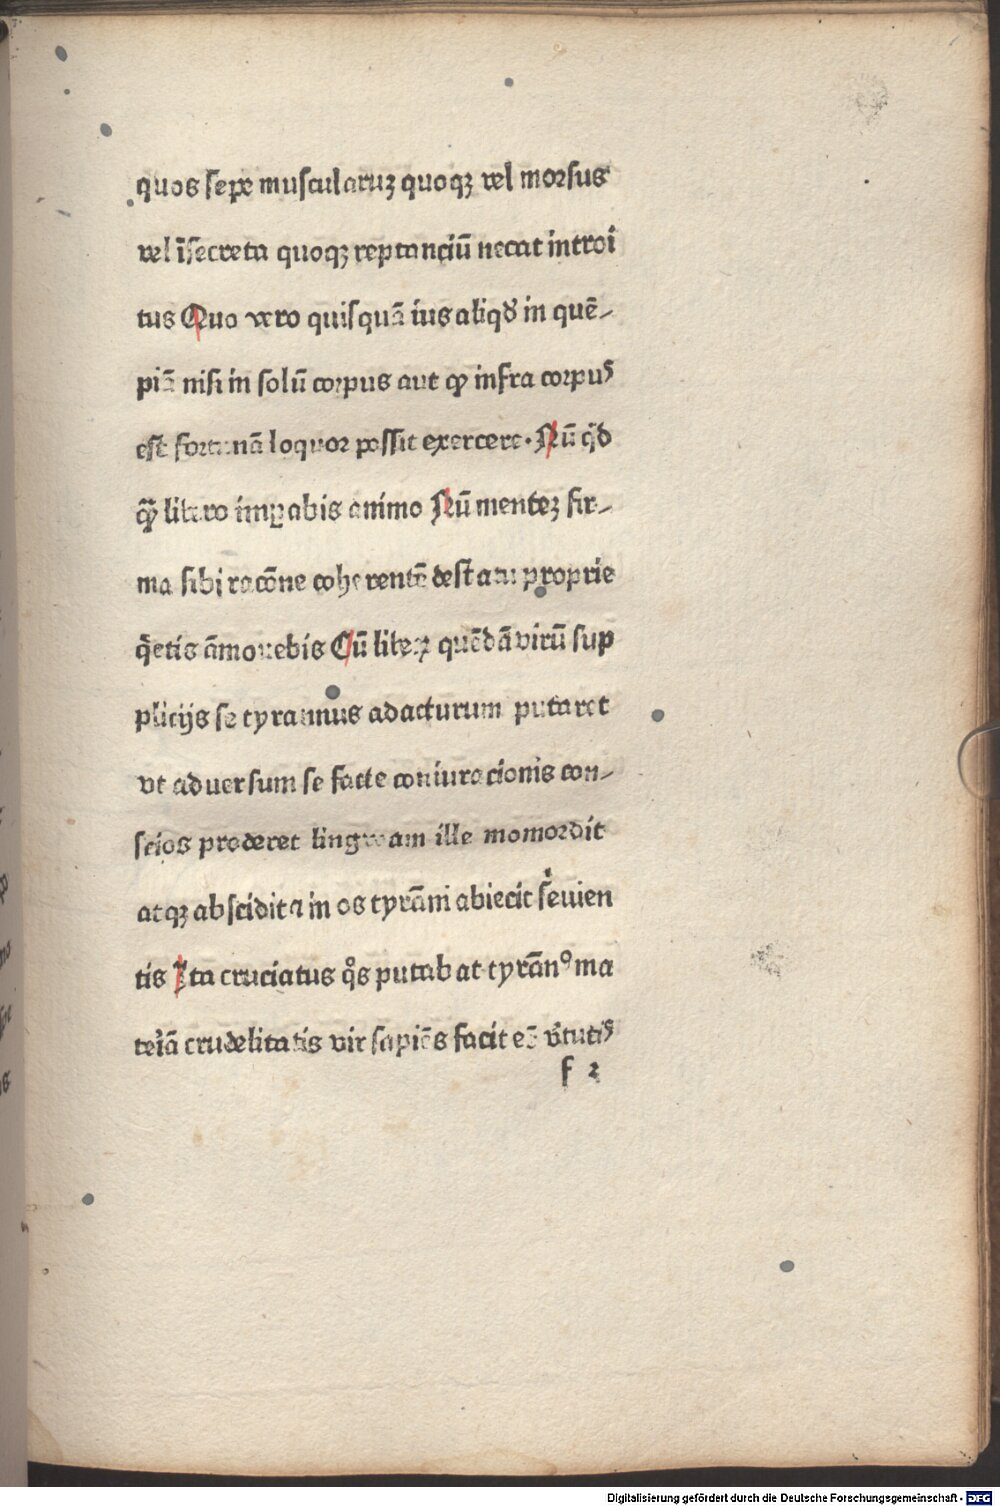 quos sepe muscularuꝫ quoqꝫ vel morsus
vel ī secreta quoqꝫ reptanciū necat introi
tus Quo vero quisquā ius aliqđ in quē-
piā nisi in solū corpus aut qꝫ infra corpuꝰ
est fortunā loquor possit exercere. Nū qͥd
qᷓꝫ libero imꝑabis animo Nū menteꝫ fir-
ma sibi racōne coherentē de statu proprie
qͥetis āmouebis Cū libeꝝ quēdā virū sup
plicijs se tyrannus adacturum putaret
vt aduersum se facte coniuracionis con-
scios proderet linguam ille momordit
atqꝫ abscidit ⁊ in os tyrāni abiecit seͥuien
tis Ita cruciatus qͦs putabat tyrānꝰ ma
teriā crudelitatis vir sapiēs facit eē v̓tutiꝰ
f 2
Digitalisierung gefördert durch die Deutsche Forschungsgemeinschaft - DFG